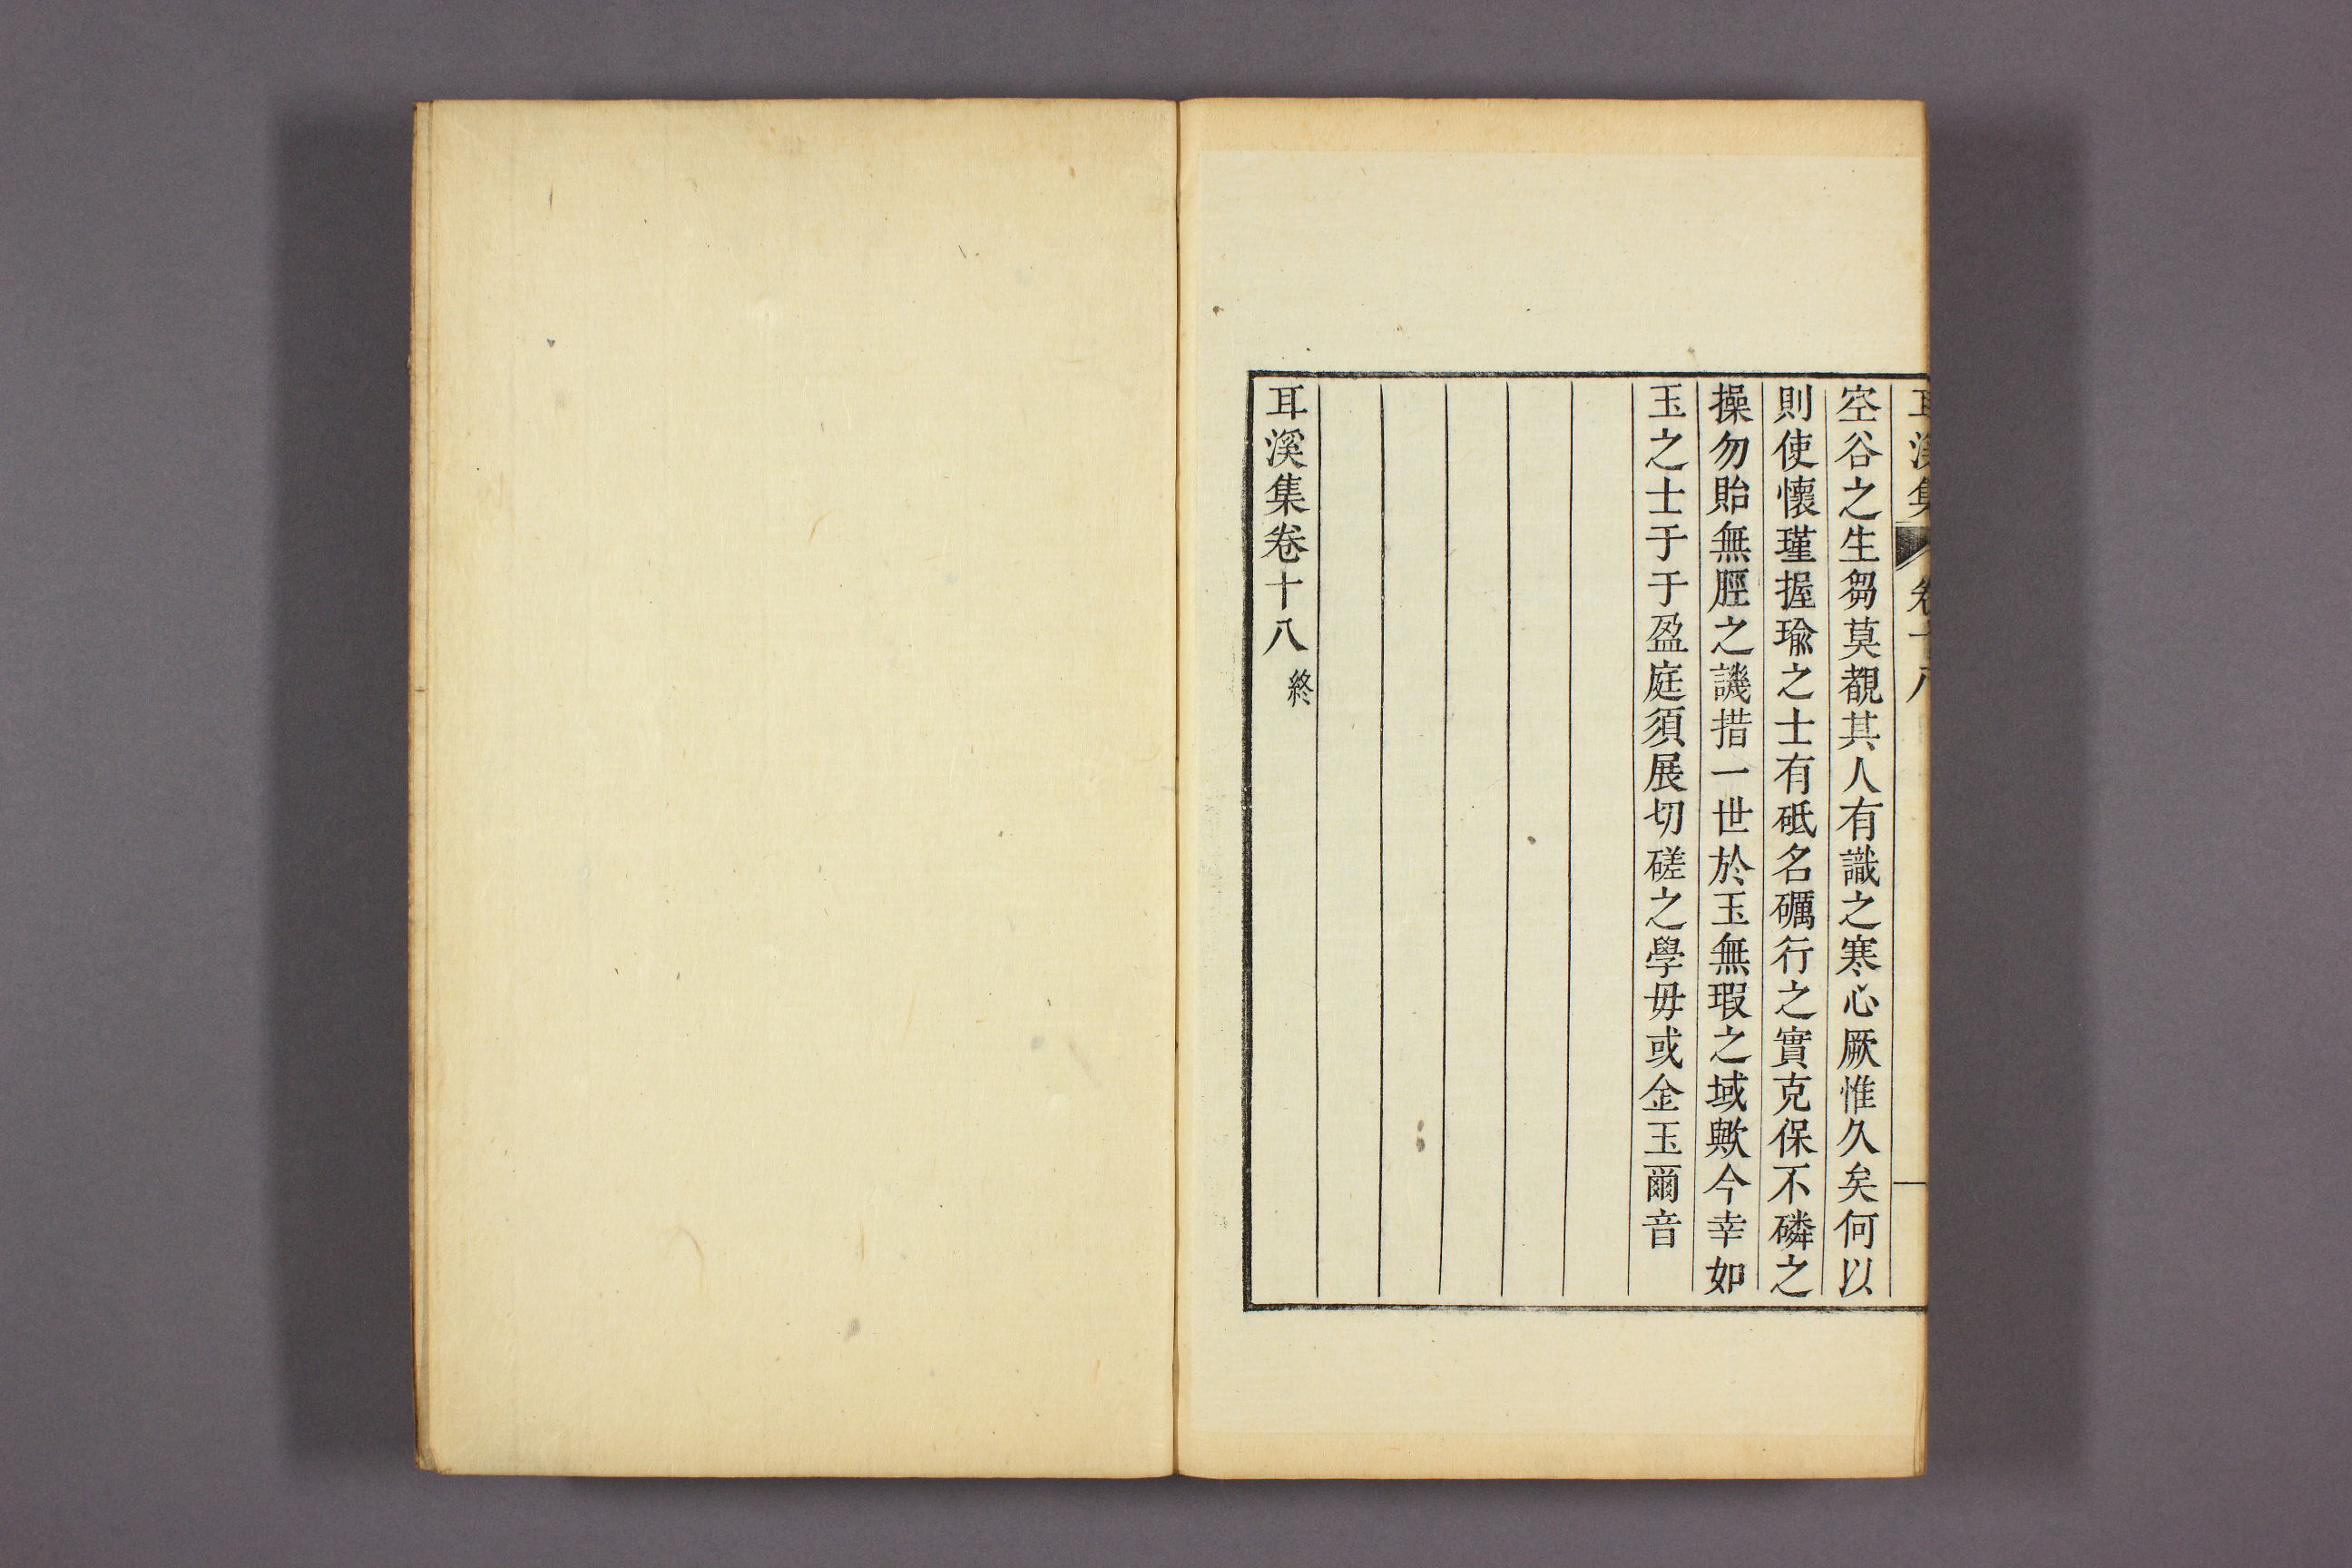 耳溪集 卷十八
空谷之生芻莫覩其人有識之寒心厥惟久矣何以
則使懷瑾握瑜之士有砥名礪行之實克保不磷之
操勿貽無脛之譏措一世於玉無瑕之域歟今幸如
玉之士于于盈庭須展切磋之學毋或金玉爾音
耳溪集卷十八 終